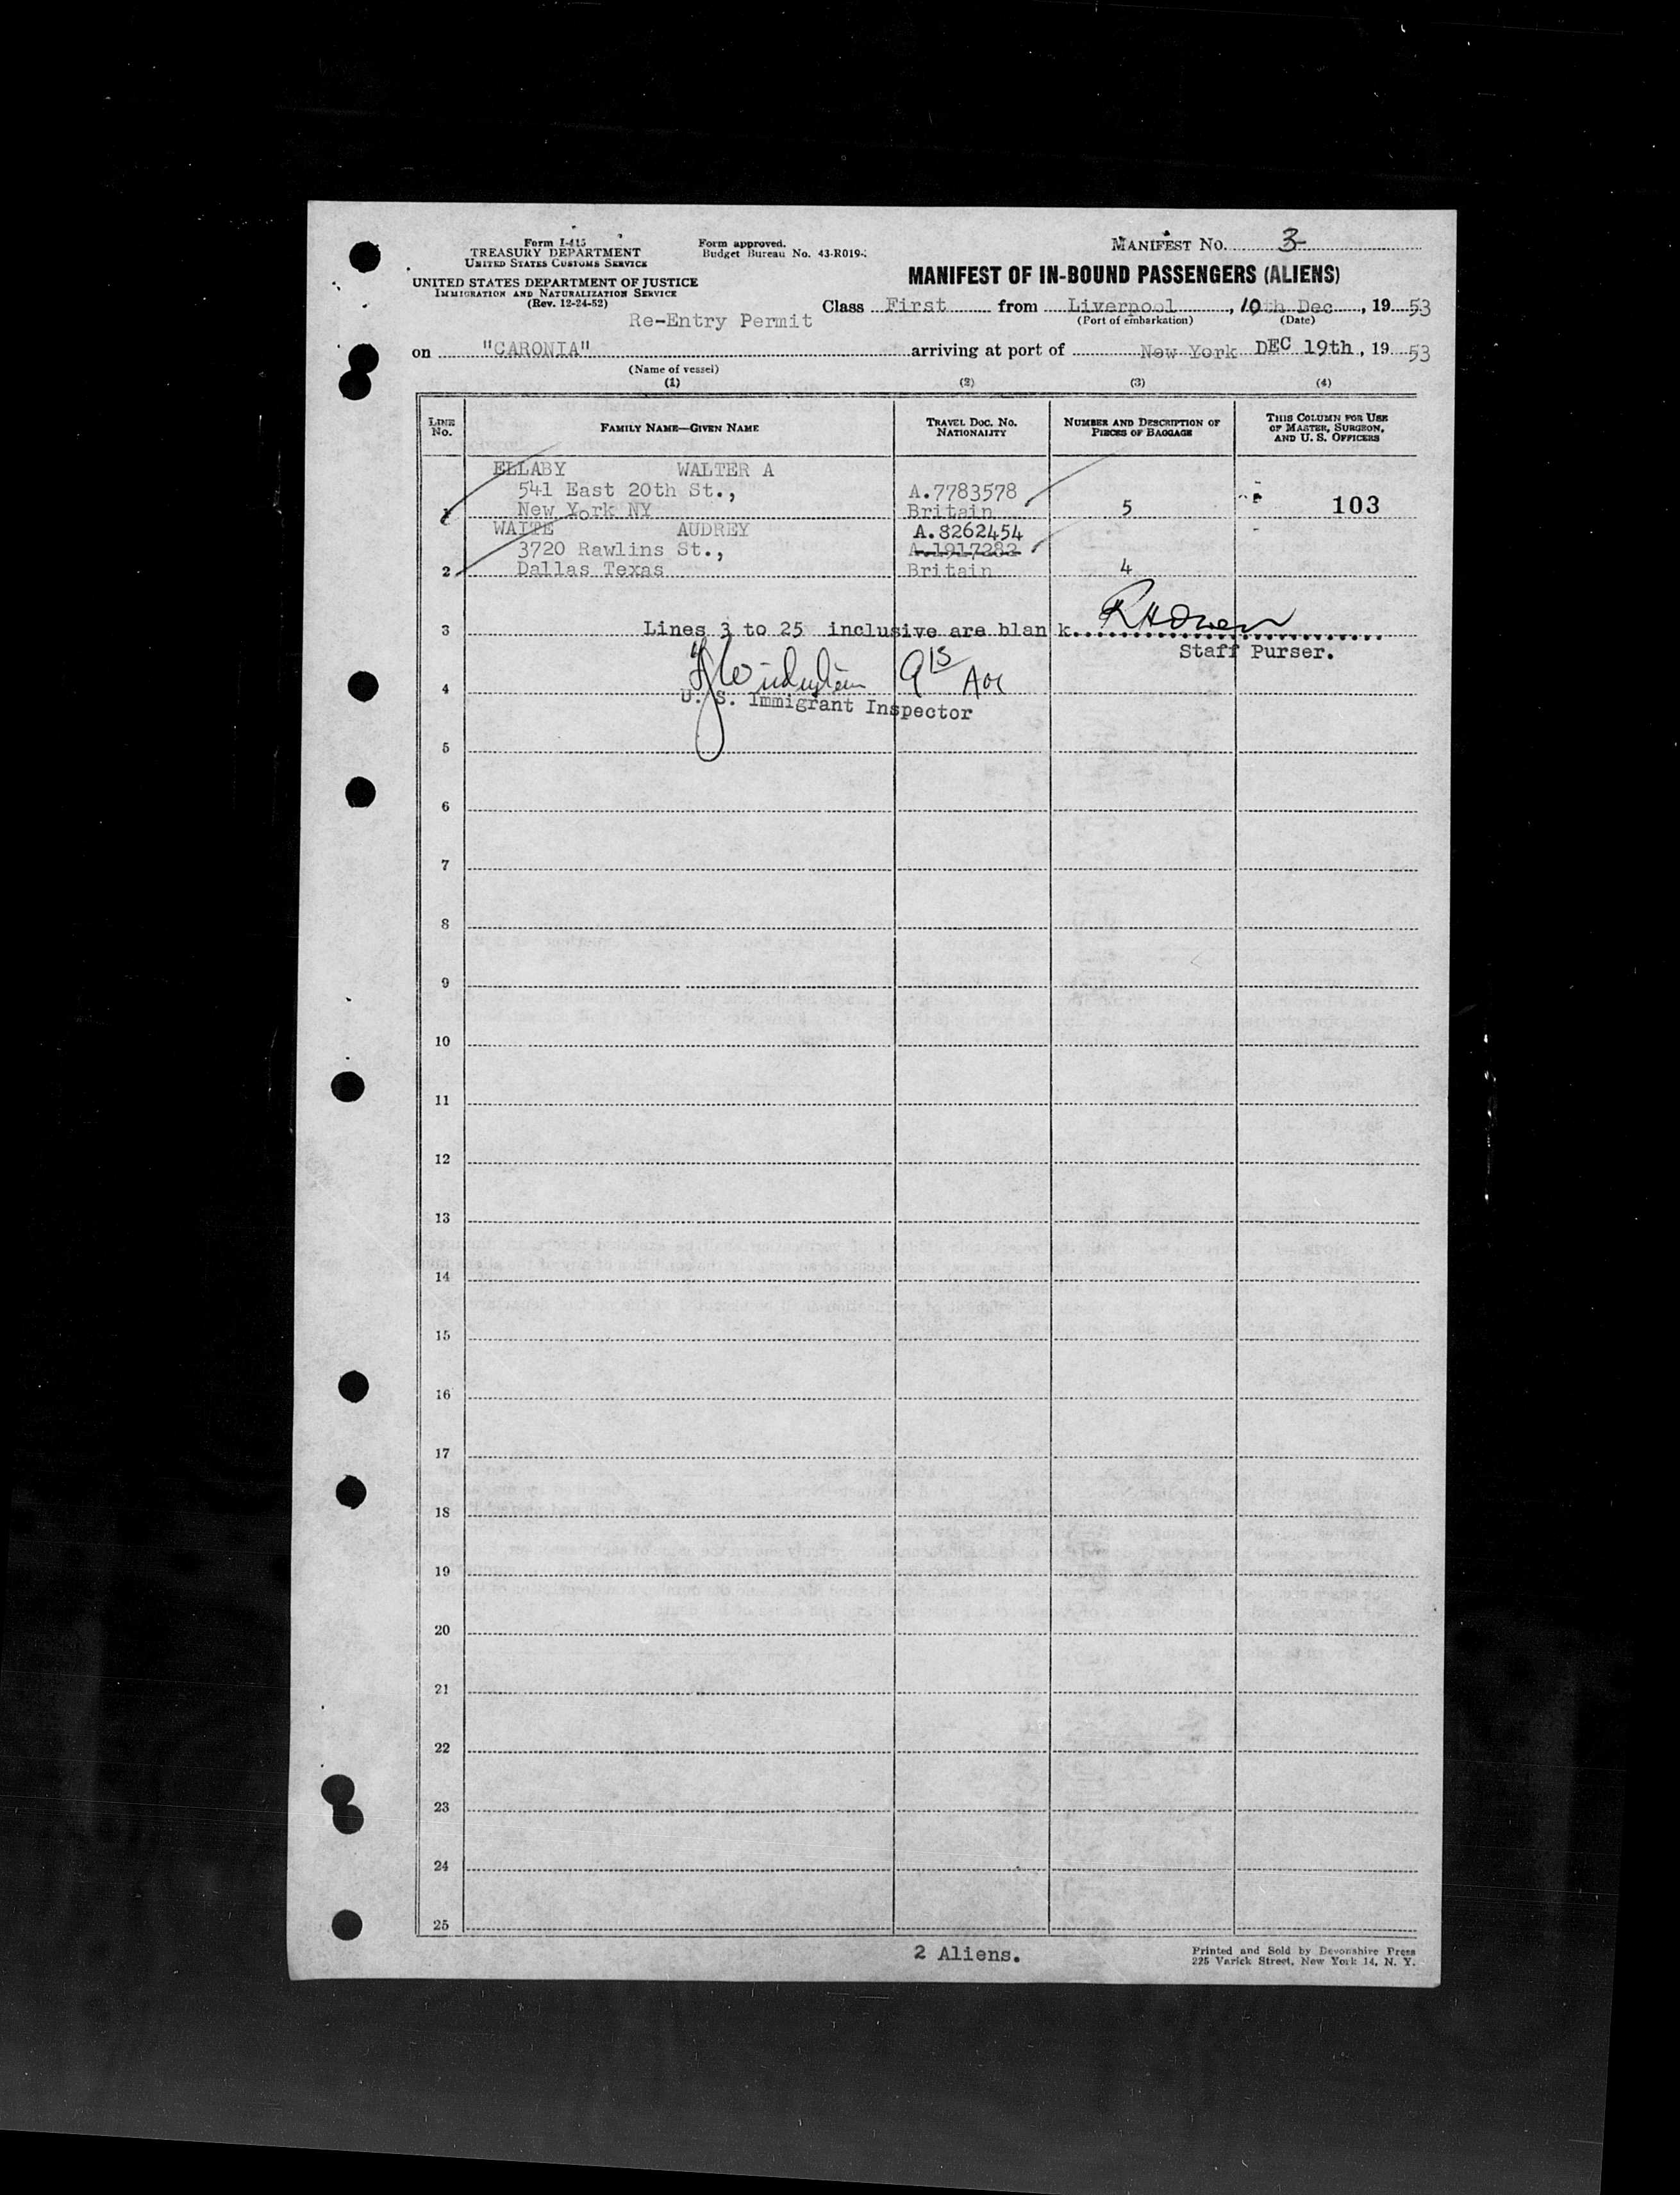 Form I-415
TREASURY DEPARTMENT
UNITED STATES CUSTOMS SERVICE
UNITED STATES DEPARTMENT OF JUSTICE
IMMIGRATION AND NATURALIZATION SERVICE
(Rev. 12-24-52)
Form approved.
Budget Bureau No. 43-R019-
MANIFEST No. 3
MANIFEST OF IN-BOUND PASSENGERS (ALIENS)
Re-Entry Permit
Class First from Liverpool, 10th Dec, 1953
(Port of embarkation) (Date)
on "CARONIA" arriving at port of New York DEC 19th, 1953
(Name of vessel)
(1) (2) (3) (4)
LINE No. FAMILY NAME—GIVEN NAME TRAVEL DOC. NO. NATIONALITY NUMBER AND DESCRIPTION OF PIECES OF BAGGAGE THIS COLUMN FOR USE OF MASTER, SURGEON, AND U. S. OFFICERS
ELLABY WALTER A
541 East 20th St., A.7783578
1 New York NY Britain 5 103
WAITE AUDREY A.8262454
3720 Rawlins St., A.1917282
2 Dallas Texas Britain 4
3 Lines 3 to 25 inclusive are blank.
Staff Purser.
4
U. S. Immigrant Inspector
5
6
7
8
9
10
11
12
13
14
15
16
17
18
19
20
21
22
23
24
25
2 Aliens.
Printed and Sold by Devonshire Press
225 Varick Street, New York 14, N. Y.